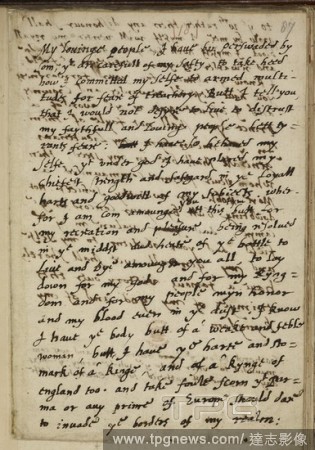 87
My lovinge people I have bin perswaded by
som yt are carefull of my safty to take heed
how I committed my selfe to armed multi-
tuds for fear of treachery butt I tell you
that I would not desyre to live to distrust
my faithfull and lovinge people lett ty-
rants feare I have so behaved my
selfe yt under god I have placed my
chifest strength and safgard in ye loyall
harts and goodwill of my subiects wher-
for I am com amoungst all this but for
my recreation and pleasure being resolved
in ye middst and heate of ye battle to
live and dye amoungst you all to lay
down for my god and for my king-
dom and for my people myn honor
and my blood even in ye dust I know
I have ye body butt of a weake and feble
woman butt I have ye harte and sto-
mark of a kinge and of a kynge of
england too and take fowle scorn yt par-
ma or any prince of Europe should dare
to invade ye borders of my realm
TPG
www.tpgnews.com / 達志影像